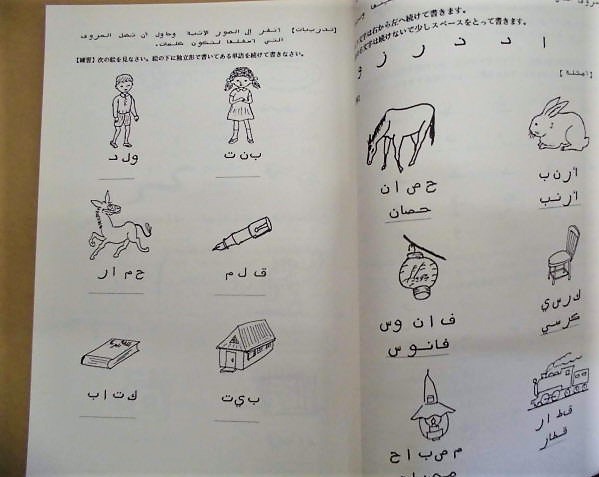 字は右から左へ続けて書きます。
文字は続けないで少しスペースをとって書きます。
ا د ذ ر ز و
[أمثلة]
أ ر ن ب
أرنب
ح ص ا ن
حصان
ك ر س ي
كرسي
ف ا ن و س
فانوس
ق ط ا ر
قطار
م ص ب ا ح
[تدريبات] انظر إلى الصور الآتية وحاول أن تصل الحروف
التي أسفلها لتكون كلمات.
【練習】次の絵を見なさい。絵の下に独立形で書いてある単語を続けて書きなさい。
ب ن ت
و ل د
ق ل م
ح م ا ر
ب ي ت
ك ت ا ب